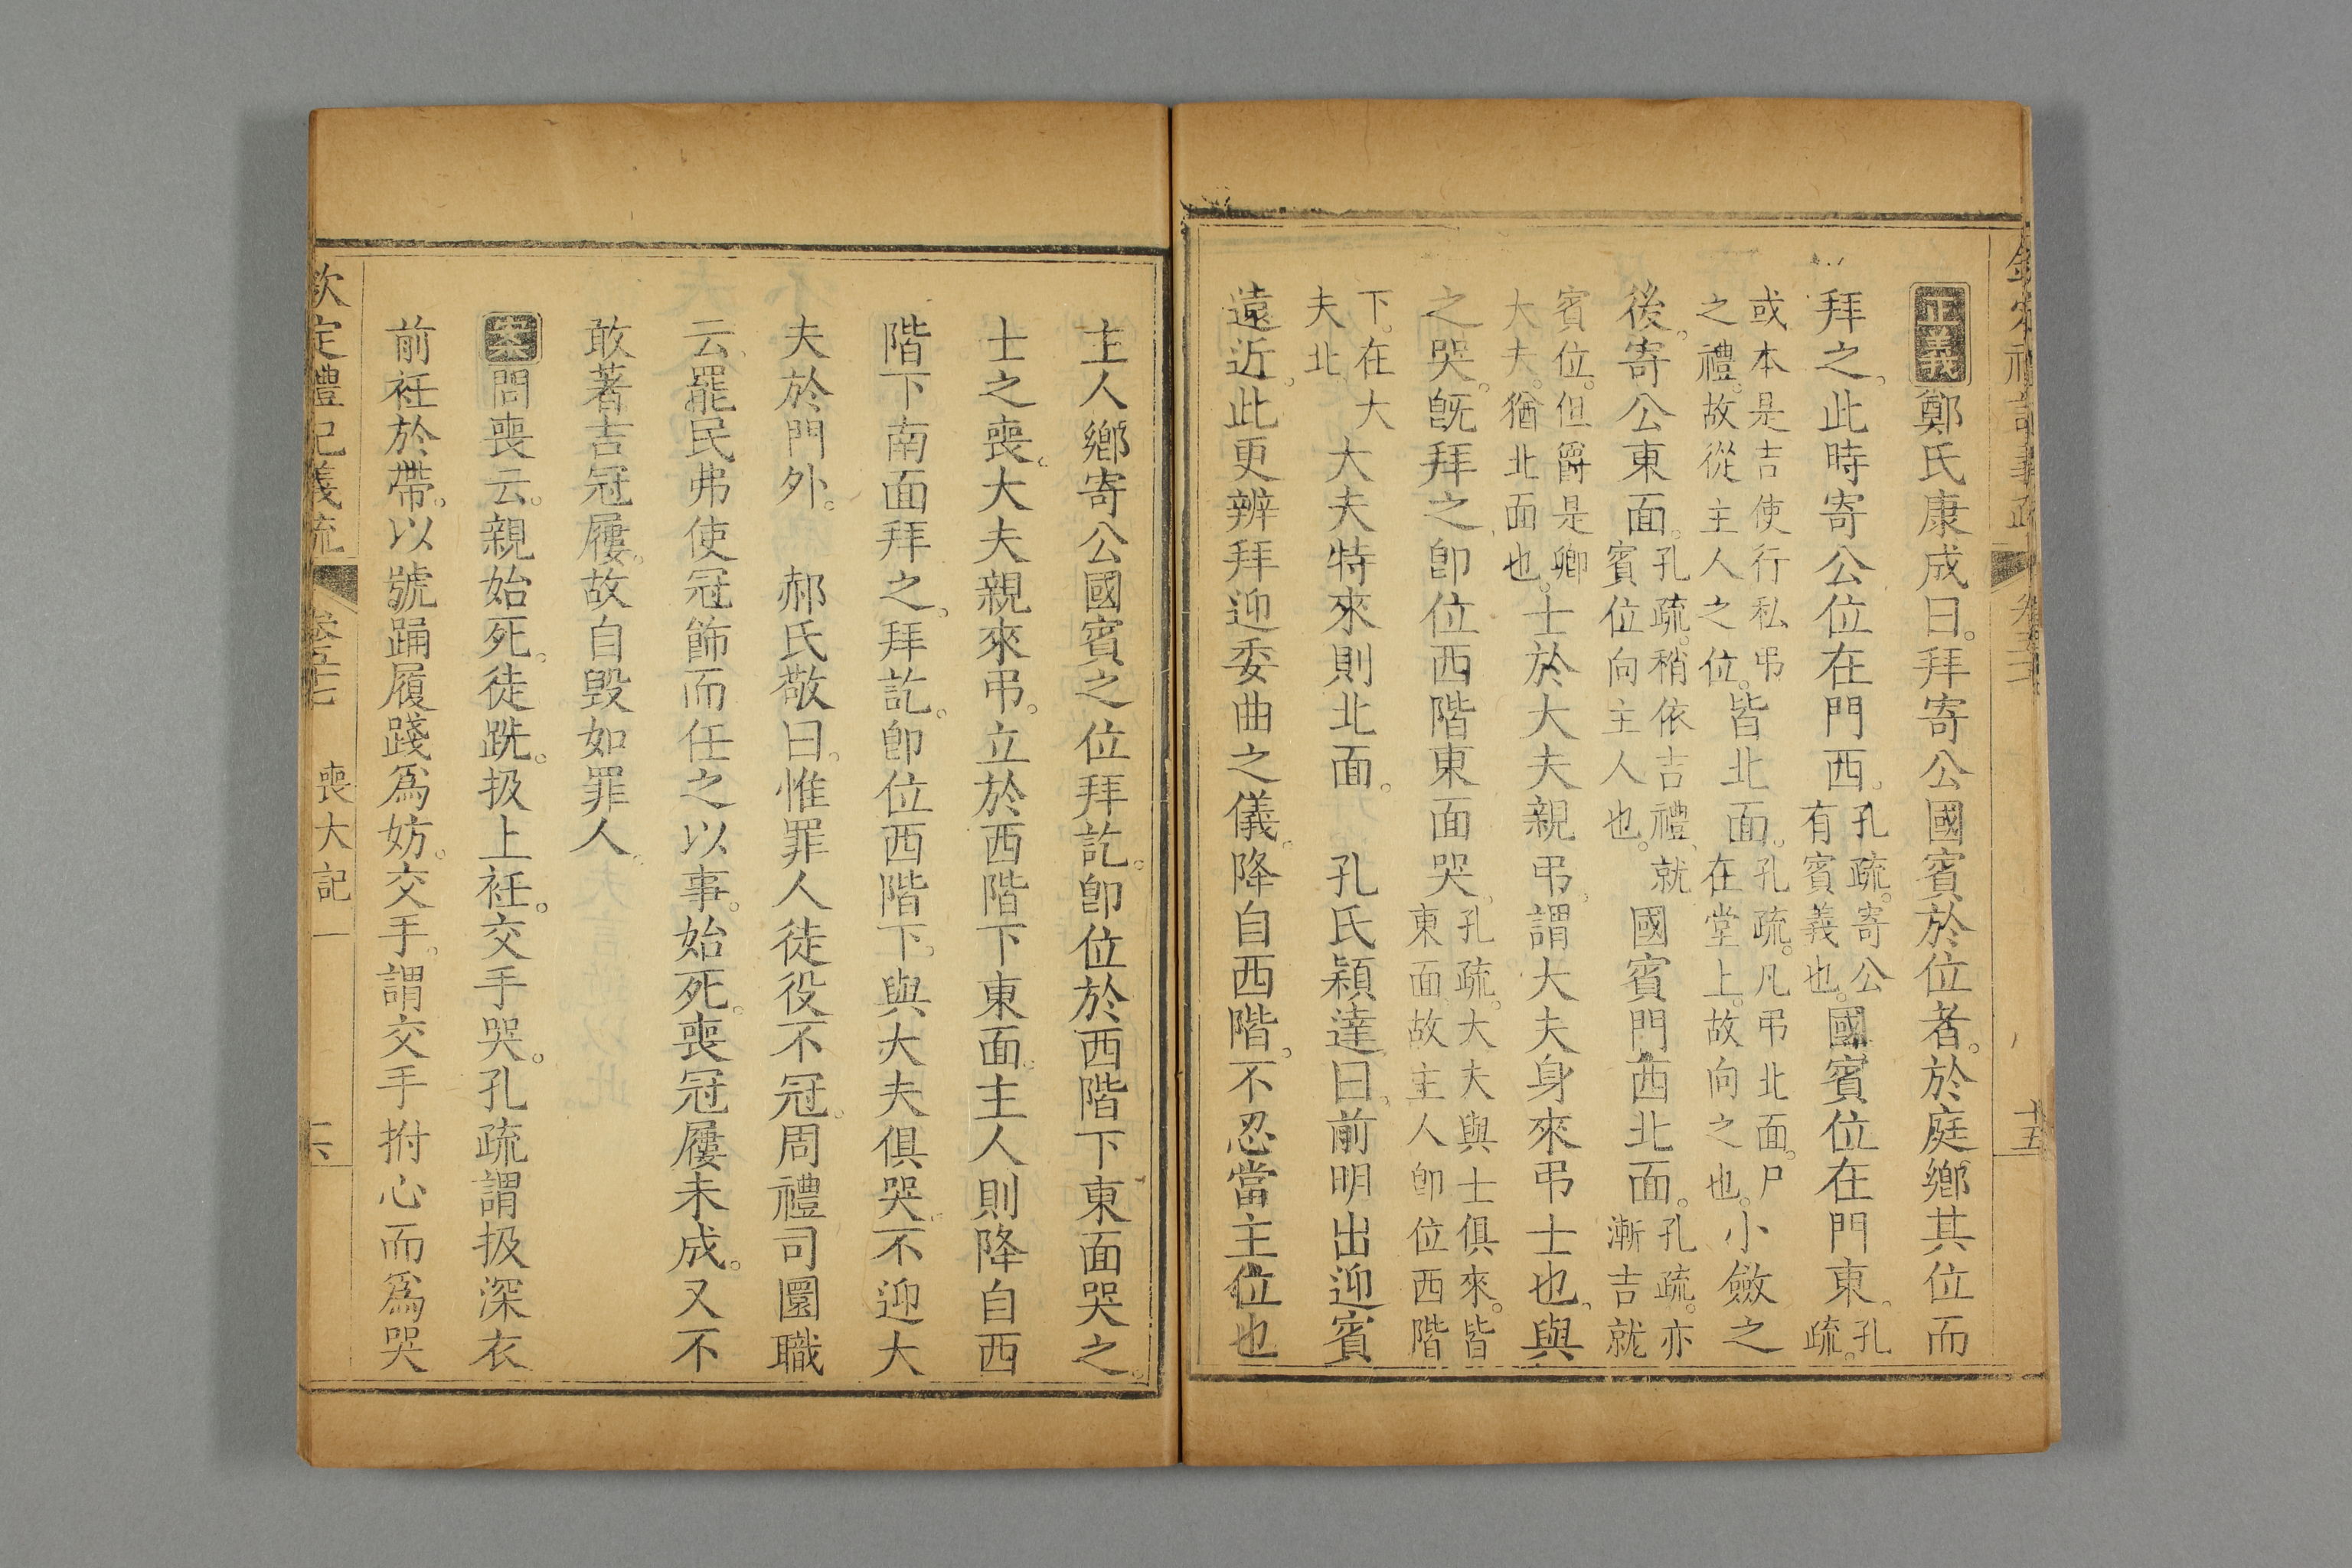 正義鄭氏康成曰。拜寄公國賓於位者。於庭鄉其位而
拜之。此時寄公位在門西。孔疏。寄公有賓義也。國賓位在門東。孔疏。
或本是吉使行私弔之禮。故從主人之位。皆北面。孔疏。凡弔北面。尸在堂上。故向之也。小斂之
後。寄公東面。孔疏。稍依吉禮、就賓位向主人也。國賓門西北面。孔疏。亦漸吉就
賓位。但爵是卿大夫。猶北面也。士於大夫親弔。謂大夫身來弔士也。與
之哭。旣拜之、卽位西階東面哭。孔疏。大夫與士俱來。皆東面故主人卽位西階
下。在大夫北 大夫特來則北面。 孔氏穎達曰。前明出迎賓
遠近。此更辨拜迎委曲之儀。降自西階。不忍當主位也
十五
主人鄉寄公國賓之位拜訖。卽位於西階下東面哭之。
士之喪。大夫親來弔。立於西階下東面。主人則降自西
階下南面拜之。拜訖。卽位西階下。與大夫俱哭。不迎大
夫於門外。 郝氏敬曰。惟罪人徒役不冠。周禮司圜職
云、罷民弗使冠飾而任之以事。始死。喪冠屨未成。又不
敢著吉冠屨。故自毀如罪人。
案問喪云。親始死。徒跣。扱上衽。交手哭。孔疏謂扱深衣
前衽於帶。以號踊履踐爲妨。交手。謂交手拊心而爲哭
欽定禮記義疏 卷五十七 喪大記一